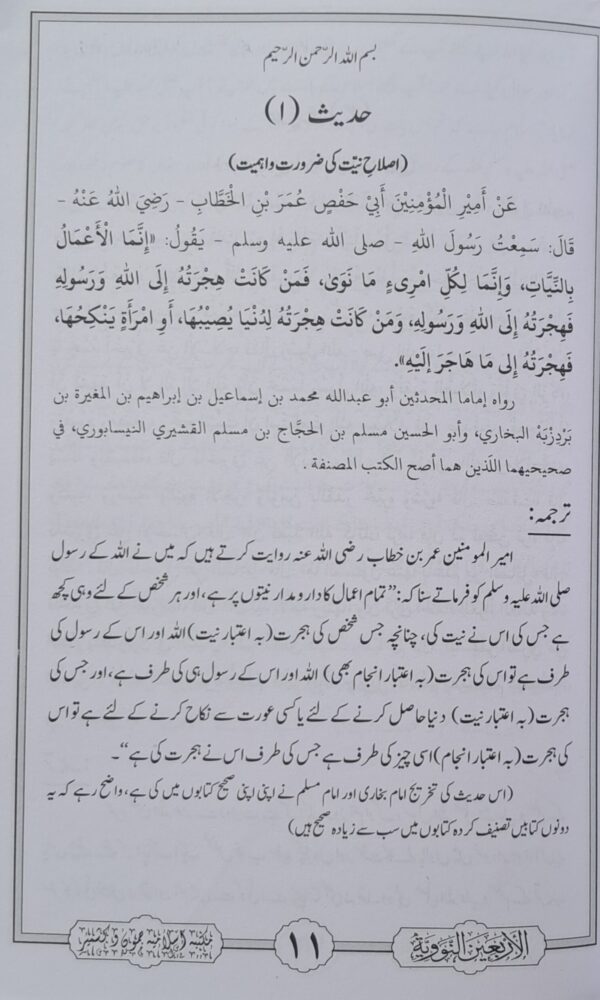 بسم اللہ الرّحمن الرّحیم
حدیث (۱)
(اصلاحِ نیّت کی ضرورت واہمیت)
عَنْ أَمِيْرِ الْمُؤْمِنِيْنَ أَبِيْ حَفْصٍ عُمَرَ بْنِ الْخَطَّابِ – رَضِيَ اللهُ عَنْهُ –
قَالَ: سَمِعْتُ رَسُولَ اللهِ – صلى الله عليه وسلم – يَقُولُ: «إِنَّمَا الْأَعْمَالُ
بِالنِّيَّاتِ، وَإِنَّمَا لِكُلِّ امْرِىءٍ مَا نَوَىٰ، فَمَنْ كَانَتْ هِجْرَتُهُ إِلَى اللهِ وَرَسُولِهِ
فَهِجْرَتُهُ إِلَى اللهِ وَرَسُولِهِ، وَمَنْ كَانَتْ هِجْرَتُهُ لِدُنْيَا يُصِيْبُهَا، أَوِ امْرَأَةٍ يَنْكِحُهَا،
فَهِجْرَتُهُ إِلى مَا هَاجَرَ إِلَيْهِ».
رواه إماما المحدثين أبو عبدالله محمد بن إسماعيل بن إبراهيم بن المغيرة بن
بَرْدِزْبَهْ البخاري، وأبو الحسين مسلم بن الحجَّاج بن مسلم القشيري النيسابوري، في
صحيحيهما اللّذين هما أصح الكتب المصنفة .
ترجمہ:
امیر المومنین عمر بن خطاب رضی اللہ عنہ روایت کرتے ہیں کہ میں نے اللہ کے رسول
صلی اللہ علیہ وسلم کو فرماتے سنا کہ: ’’تمام اعمال کا دارومدار نیتوں پر ہے، اور ہر شخص کے لئے وہی کچھ
ہے جس کی اس نے نیت کی، چنانچہ جس شخص کی ہجرت (بہ اعتبار نیت) اللہ اور اس کے رسول کی
طرف ہے تو اس کی ہجرت (بہ اعتبار انجام بھی) اللہ اور اس کے رسول ہی کی طرف ہے، اور جس کی
ہجرت (بہ اعتبار نیت) دنیا حاصل کرنے کے لئے یا کسی عورت سے نکاح کرنے کے لئے ہے تو اس
کی ہجرت (بہ اعتبار انجام) اسی چیز کی طرف ہے جس کی طرف اس نے ہجرت کی ہے‘‘۔
(اس حدیث کی تخریج امام بخاری اور امام مسلم نے اپنی اپنی صحیح کتابوں میں کی ہے، واضح رہے کہ یہ
دونوں کتابیں تصنیف کردہ کتابوں میں سب سے زیادہ صحیح ہیں)
الأَرْبَعِينَ النَّوَوِيَّة
۱۱
مکتبہ اسلامیہ جموں و کشمیر